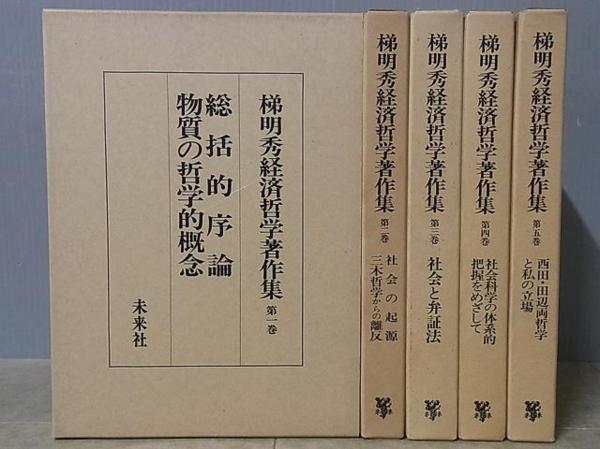 梯明秀経済哲学著作集 第一巻
総括的序論
物質の哲学的概念
未来社
梯明秀経済哲学著作集 第二巻
社会の起源
三木哲学からの離反
梯明秀経済哲学著作集 第三巻
社会と弁証法
梯明秀経済哲学著作集 第四巻
社会科学の体系的
把握をめざして
梯明秀経済哲学著作集 第五巻
西田・田辺両哲学
と私の立場